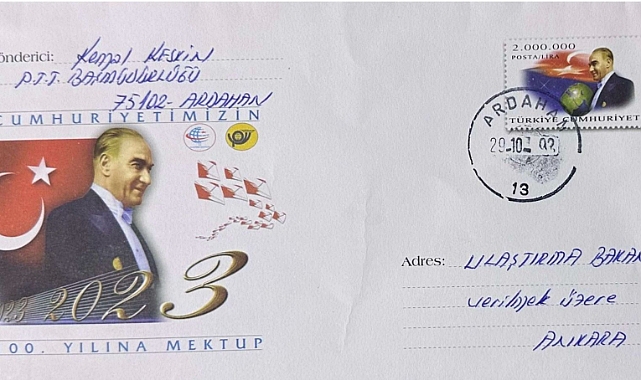 önderici: Kemal KESKİN
P.T.T. BAŞMÜDÜRLÜĞÜ
75102 - ARDAHAN
CUMHURİYETİMİZİN
2023
00. YILINA MEKTUP
2.000.000
POSTA/LİRA
TÜRKİYE CUMHURİYET
ARDAHAN
29-10
13
Adres: ULAŞTIRMA BAKAN
verilmek üzere
ANKARA